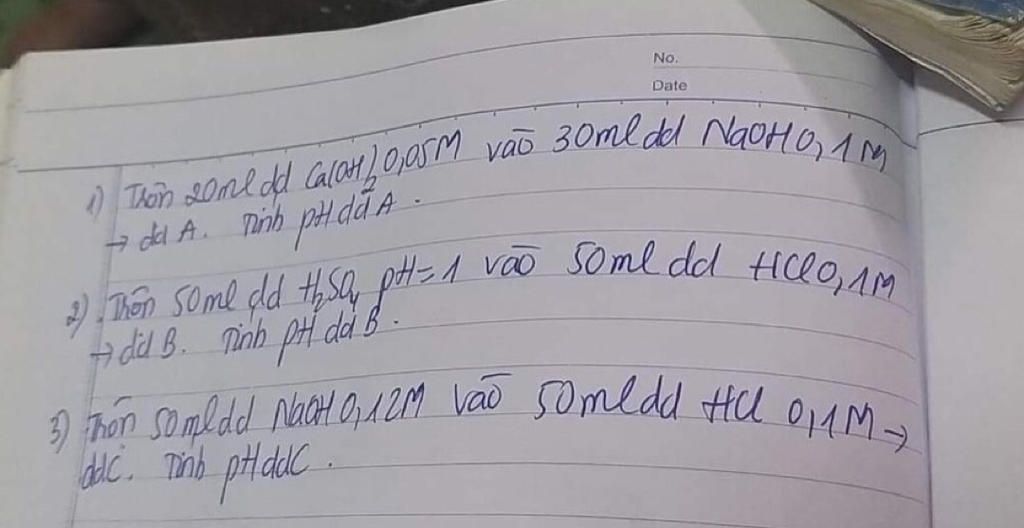 No.
Date
1) Trộn 20ml dd Ca(OH)₂ 0,05M vào 30ml dd NaOH 0,1M
→ dd A. Tính pH dd A.
2) Trộn 50ml dd H₂SO₄ pH = 1 vào 50ml dd HCl 0,1M
→ dd B. Tính pH dd B.
3) Trộn 50ml dd NaOH 0,12M vào 50ml dd HCl 0,1M →
ddC. Tính pH ddC.